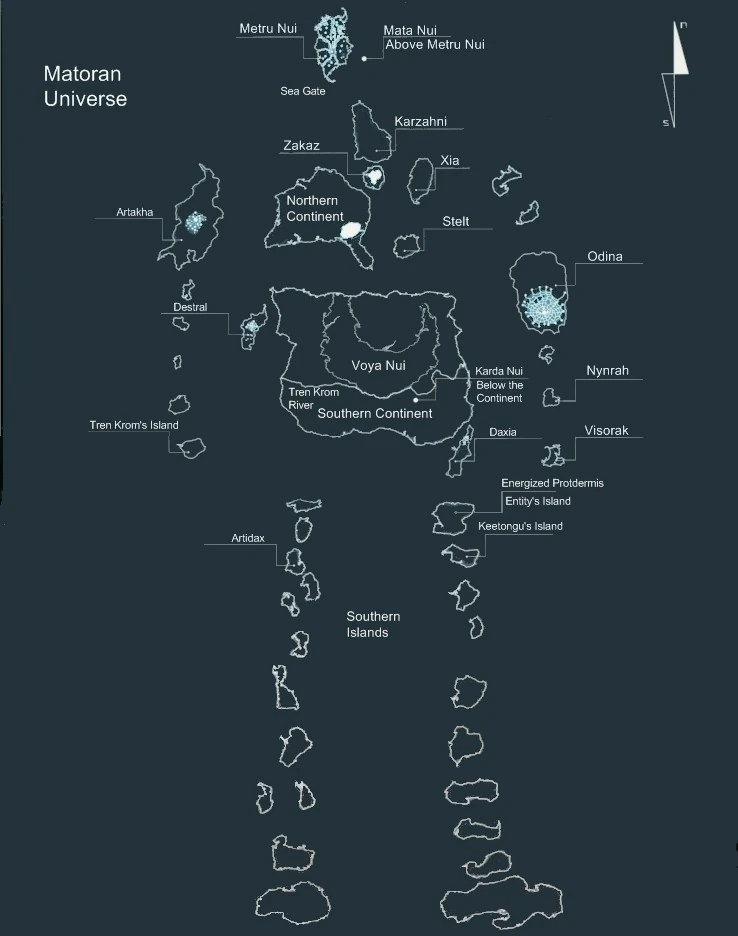 Metru Nui
Mata Nui
Above Metru Nui
n
s
Matoran
Universe
Sea Gate
Karzahni
Zakaz
Xia
Northern
Continent
Artakha
Stelt
Odina
Destral
Voya Nui
Karda Nui
Below the
Continent
Nynrah
Tren Krom
River
Southern Continent
Tren Krom's Island
Daxia
Visorak
Energized Protdermis
Entity's Island
Keetongu's Island
Artidax
Southern
Islands